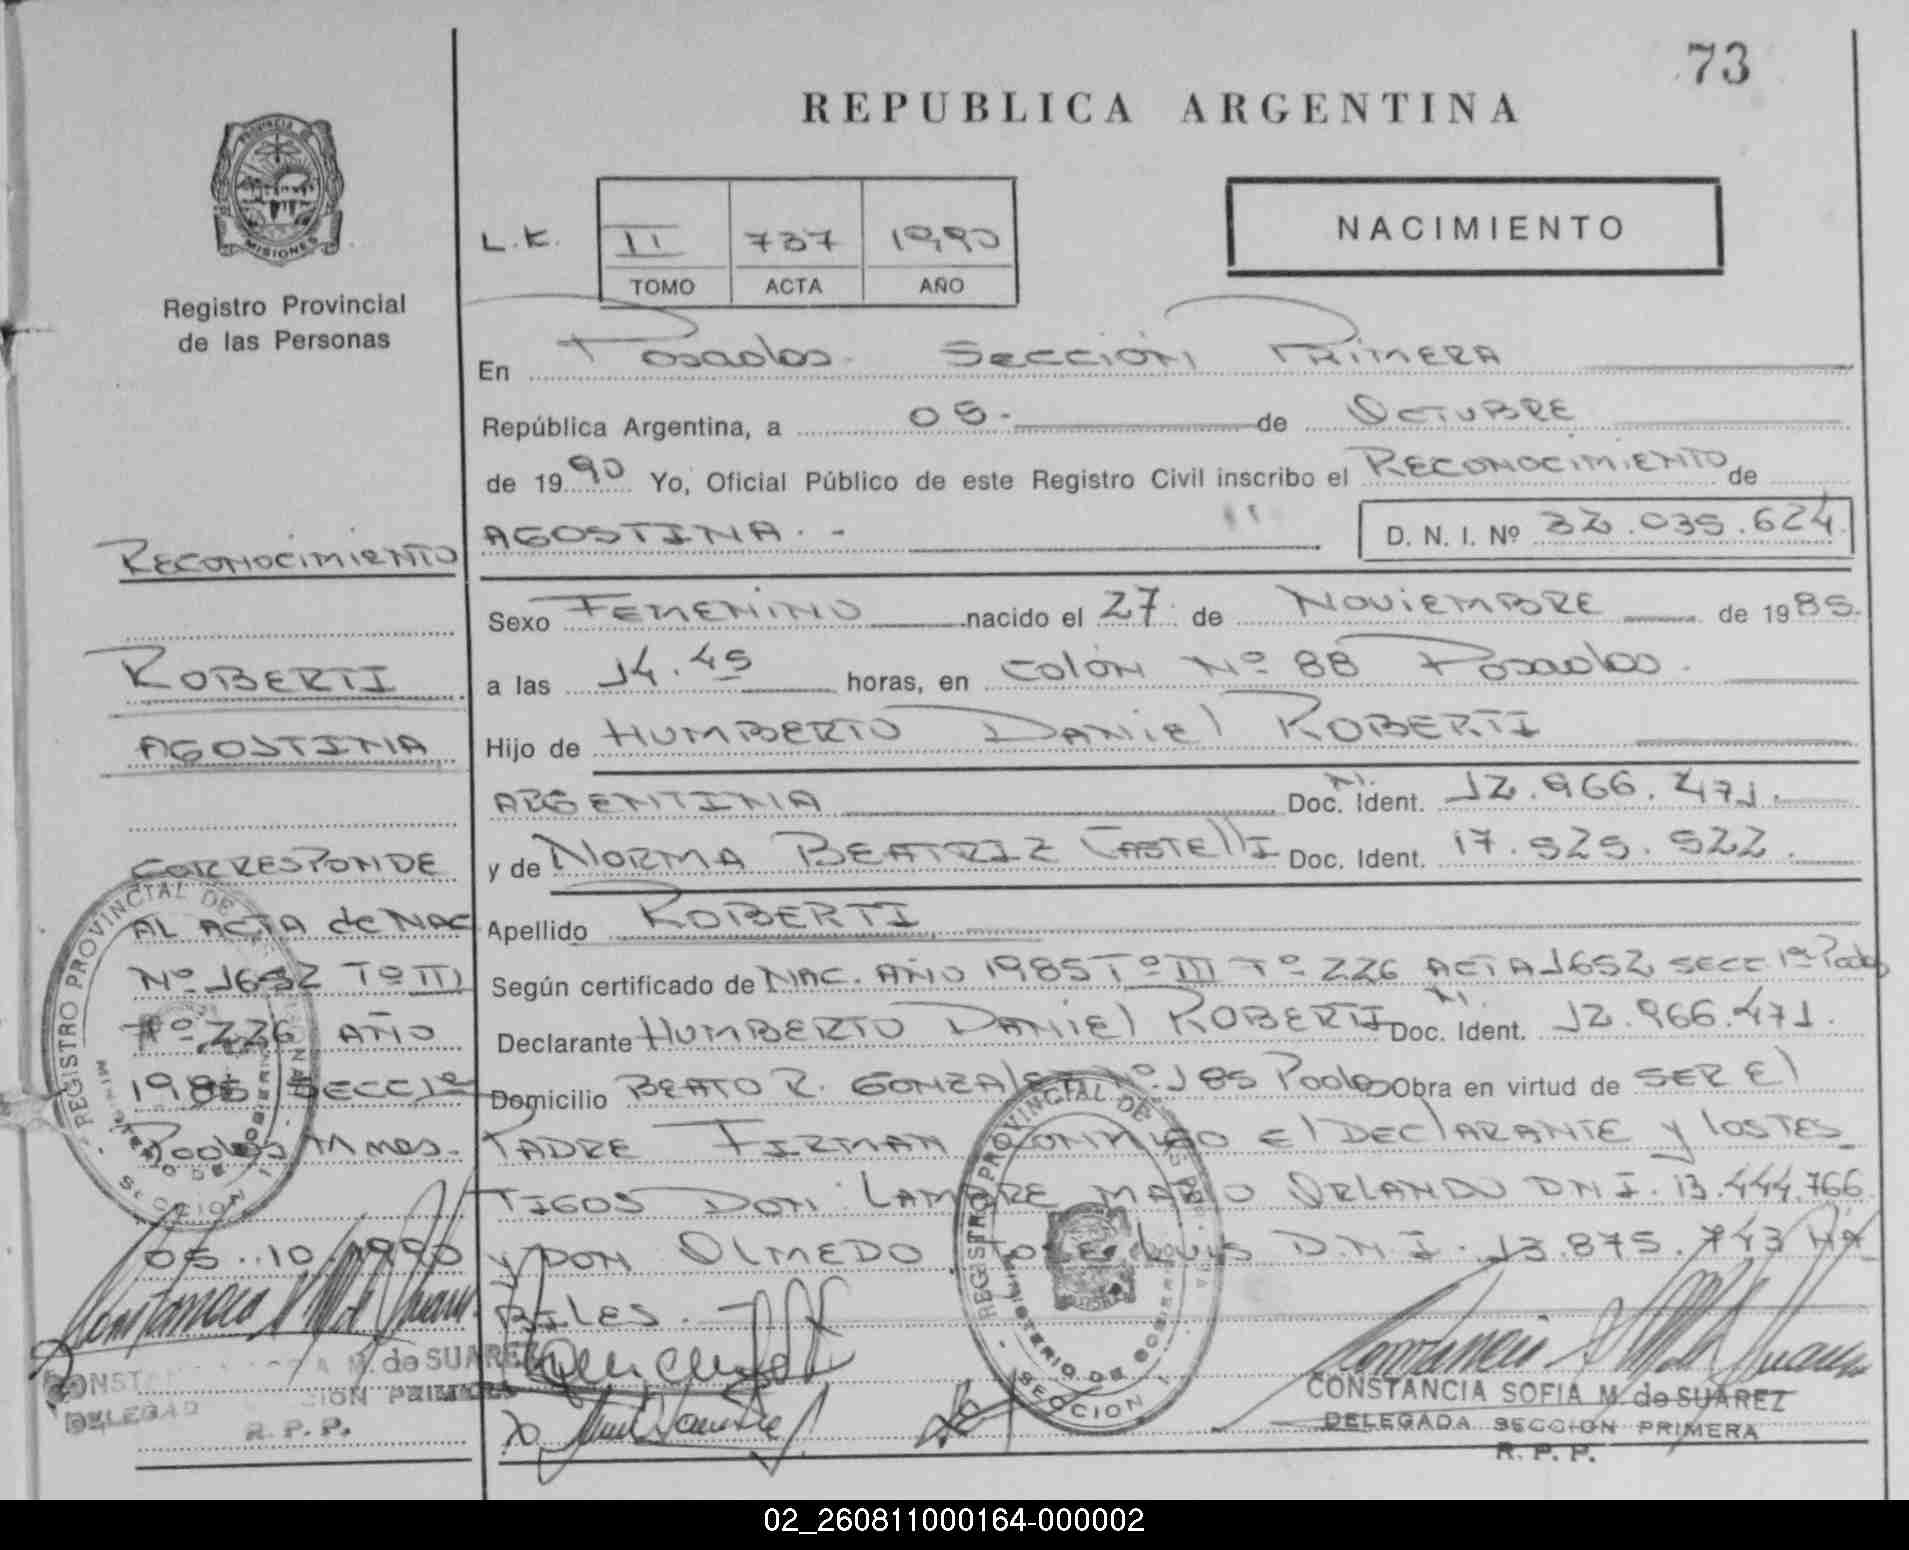 73
REPUBLICA ARGENTINA
NACIMIENTO
PROVINCIA DE
MISIONES
Registro Provincial
de las Personas
L.K. II 737 1990
TOMO ACTA AÑO
En Posadas Sección Primera
República Argentina, a 05.- de Octubre
de 1990 Yo, Oficial Público de este Registro Civil inscribo el Reconocimiento de
AGOSTINA.- D. N. I. Nº 32.035.624
Sexo Femenino nacido el 27 de Noviembre de 1985.
a las 14.45 horas, en Colón Nº 88 Posadas.
Hijo de HUMBERTO DANIEL ROBERTI
ARGENTINA Doc. Ident. M. 12.966.471.
y de NORMA BEATRIZ CASTELLI Doc. Ident. 17.525.522.
Apellido ROBERTI
Según certificado de NAC. AÑO 1985 Tº III Fº 226 ACTA 1652 SECC 1ª Pdas
Declarante HUMBERTO DANIEL ROBERTI Doc. Ident. M. 12.966.471.
Domicilio BEATO R. GONZALEZ Nº 185 Pdas Obra en virtud de SER El
PADRE FIRMAN CONMIGO El DEClARANTE y los TES
TIGOS DON: LAMBRE MARIO ORLANDO D N I. 13.444.766
y DON OLMEDO JOSE LUIS D.N.I. 13.875.743 HÁ
BILES.
CONSTANCIA SOFIA M. de SUAREZ
DELEGADA SECCION PRIMERA
R. P. P.
REGISTRO PROVINCIAL DE LAS PERSONAS
MINISTERIO DE GOBIERNO
SECCION 1
RECONOCIMIENTO
ROBERTI
AGOSTINA
CORRESPONDE
AL ACTA de NAC
Nº 1652 Tº III
Fº 226 AÑO
1985 SECC 1ª
Pdas Mnes.
05.10.1990
M. de SUAREZ
CION PRIMERA
R. P. P.
REGISTRO PROVINCIAL DE
SECCION 1
02_260811000164-000002